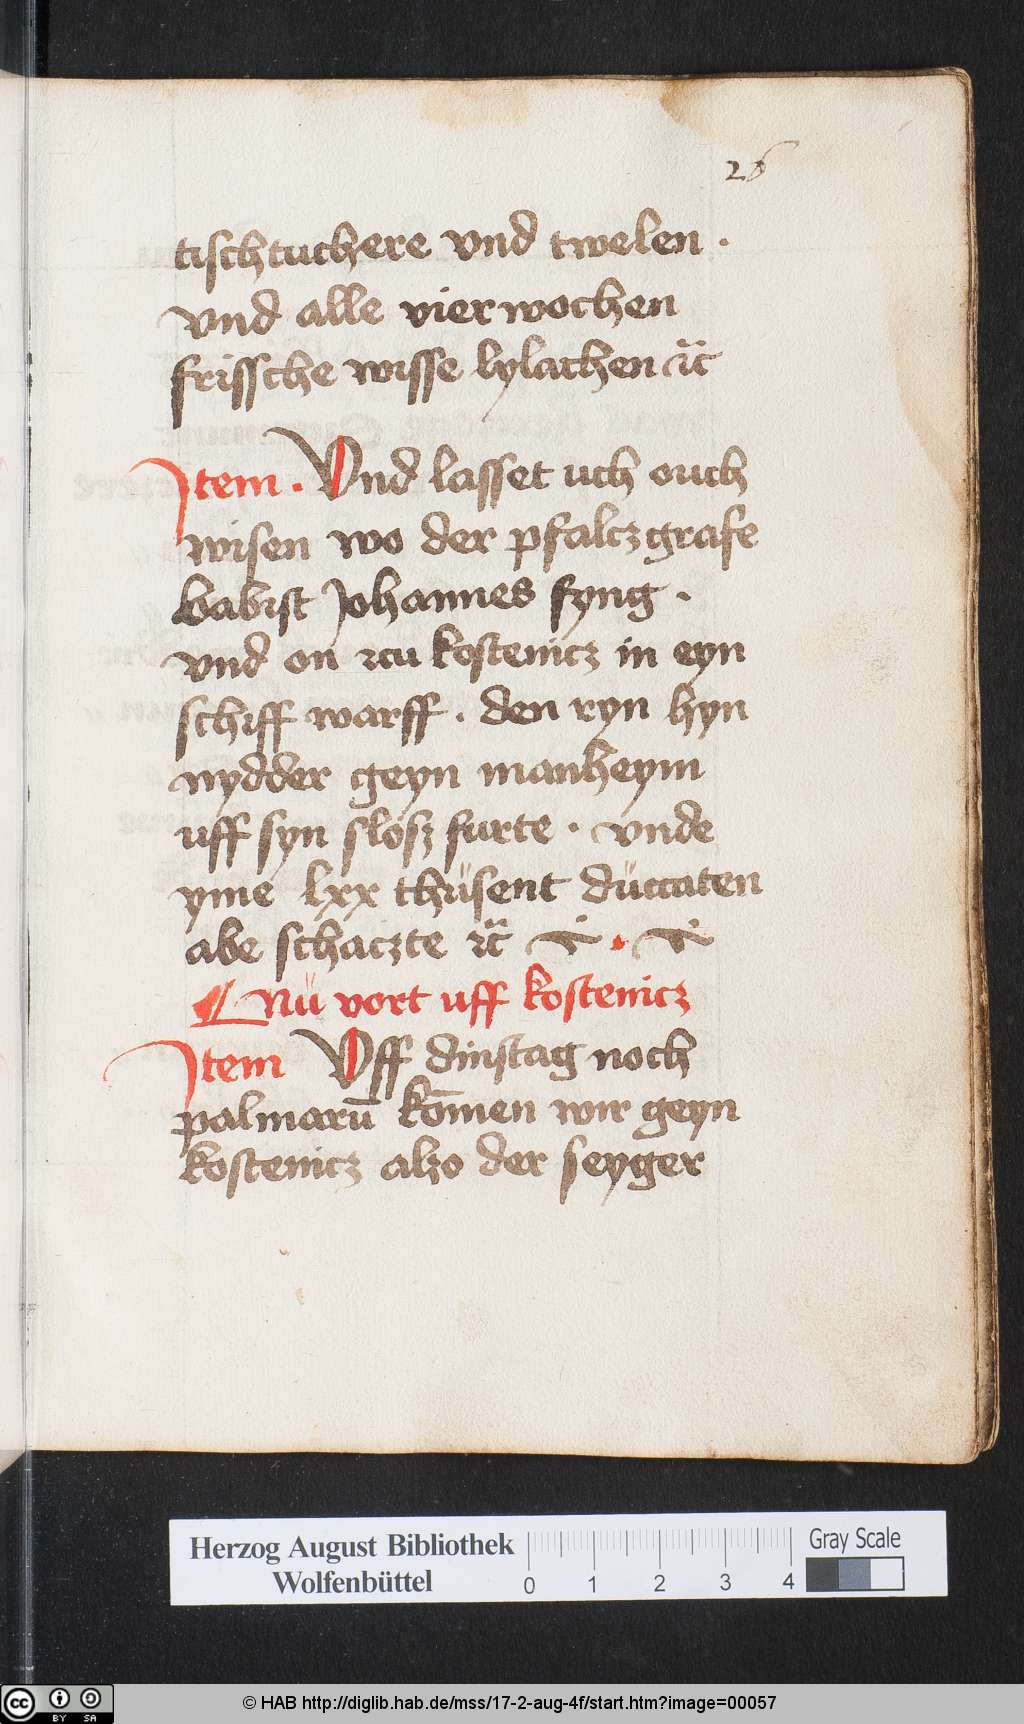 26
tischtuchere vnd twelen .
vnd alle vier wochen
frissche wisse lylachen ꝛc̈
Item . Vnd lasset uch ouch
wisen wo der pfalczgrafe
babist Johannes fyng .
vnd on zcu kostenicz in eyn
schiff warff . den ryn hyn
nydder geyn manheym
uff syn slosz furte . vnde
yme lxx thüsent düccaten
abe schaczte ꝛc̈
Nü vort uff kostenicz
Item Vff dinstag noch
palmarū kōmen wir geyn
kostenicz alzo der seyger
Herzog August Bibliothek
Wolfenbüttel
0 1 2 3 4
Gray Scale
cc BY SA
© HAB http://diglib.hab.de/mss/17-2-aug-4f/start.htm?image=00057